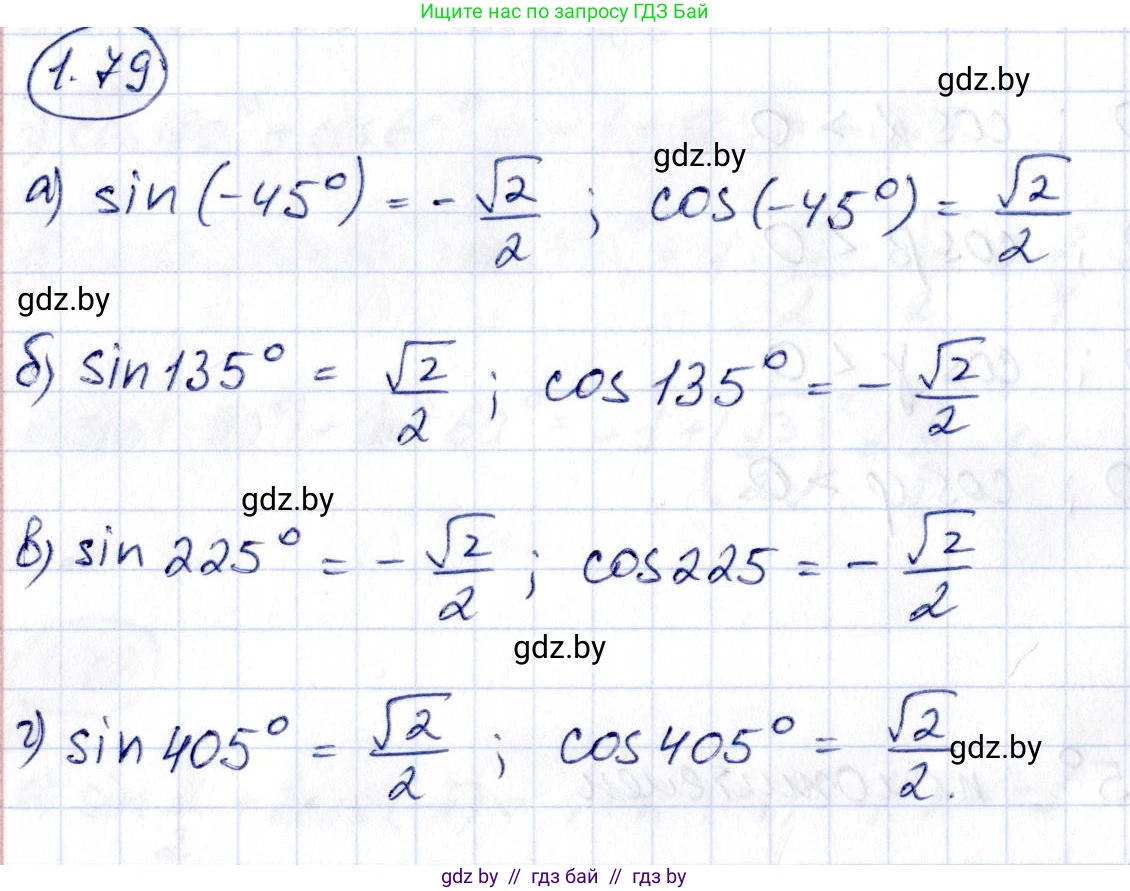 Ищите нас по запросу ГДЗ Бай
1.79
gdz.by
gdz.by
а) sin(-45°) = - √2/2 ; cos(-45°) = √2/2
gdz.by
б) sin 135° = √2/2 ; cos 135° = - √2/2
gdz.by
в) sin 225° = - √2/2 ; cos 225 = - √2/2
gdz.by
г) sin 405° = √2/2 ; cos 405° = √2/2.
gdz.by
gdz.by // гдз бай // гдз by